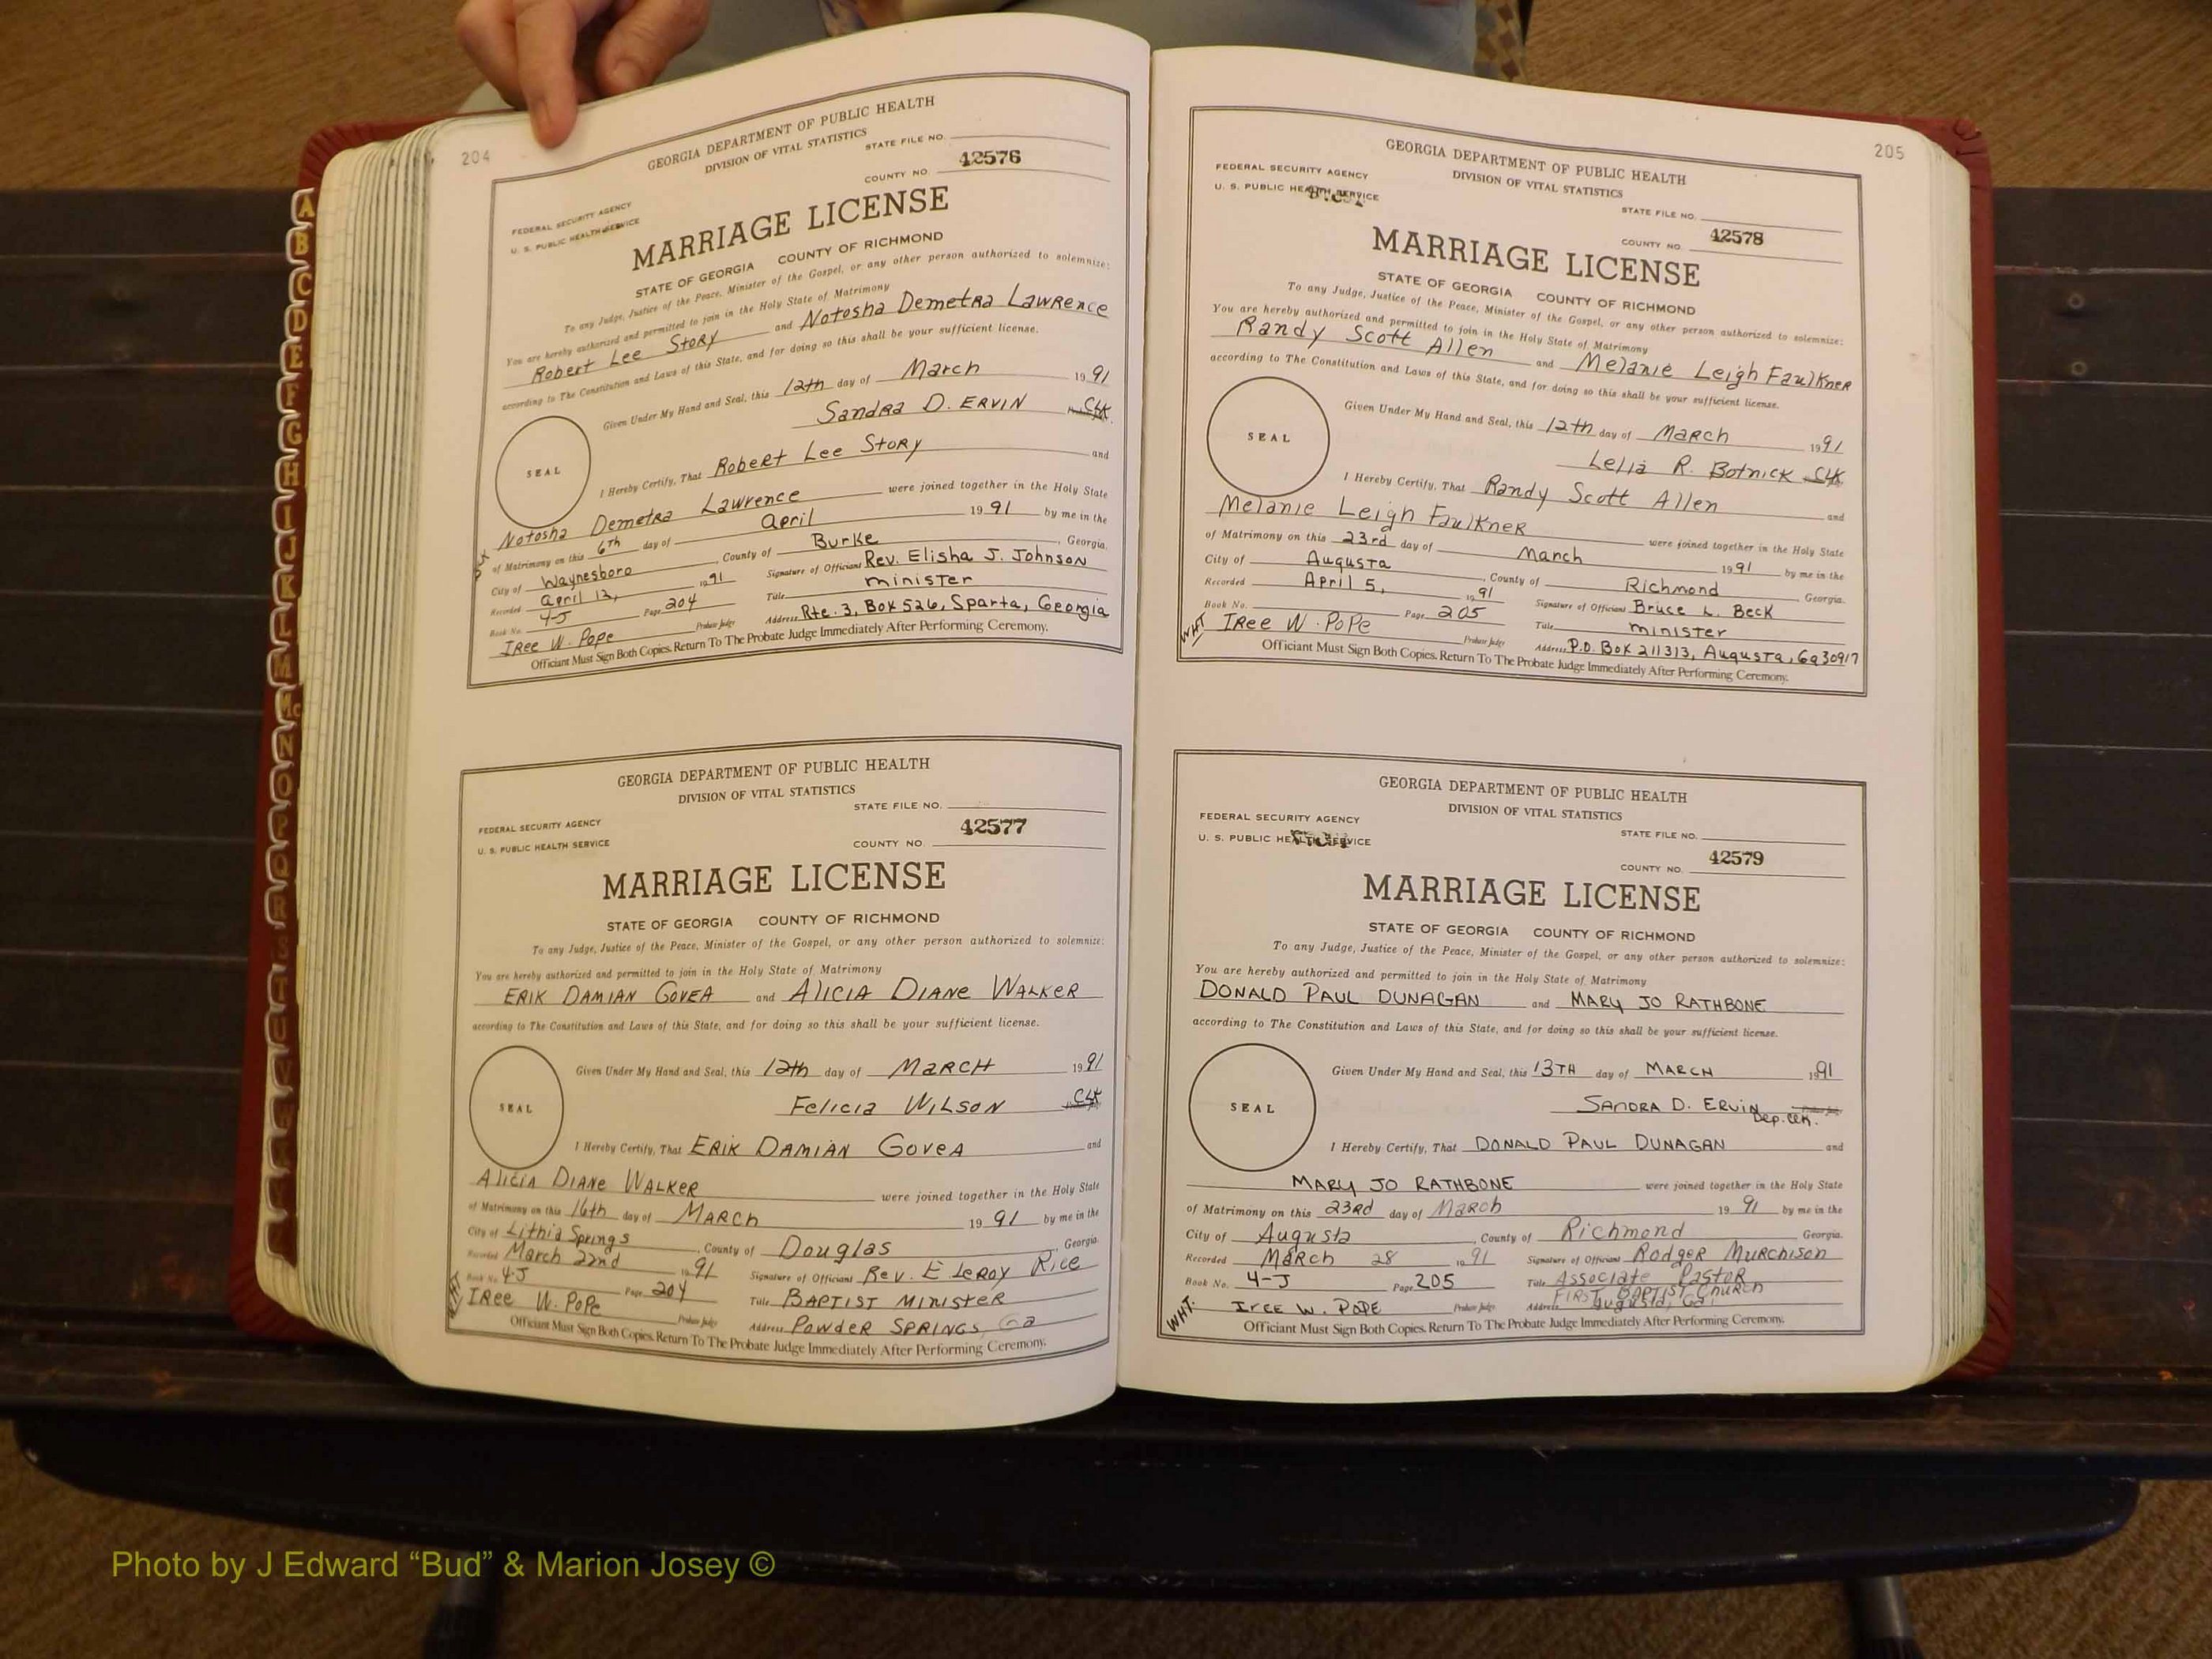 204
GEORGIA DEPARTMENT OF PUBLIC HEALTH
DIVISION OF VITAL STATISTICS
STATE FILE NO.
42576
COUNTY NO.
FEDERAL SECURITY AGENCY
U. S. PUBLIC HEALTH SERVICE
MARRIAGE LICENSE
STATE OF GEORGIA COUNTY OF RICHMOND
To any Judge, Justice of the Peace, Minister of the Gospel, or any other person authorized to solemnize:
You are hereby authorized and permitted to join in the Holy State of Matrimony
Robert Lee Story and Notosha Demetra Lawrence
according to The Constitution and Laws of this State, and for doing so this shall be your sufficient license.
Given Under My Hand and Seal, this 12th day of March 1991
Sandra D. Ervin Clk.
SEAL
I Hereby Certify, That Robert Lee Story and
Notosha Demetra Lawrence were joined together in the Holy State
of Matrimony on this 6th day of April 1991 by me in the
City of Waynesboro, County of Burke, Georgia.
Recorded April 12, 1991 Signature of Officiant Rev. Elisha J. Johnson
Book No. 4-J Page 204 Title minister
Iree W. Pope Probate Judge Address Rte. 3, Box 526, Sparta, Georgia
Officiant Must Sign Both Copies. Return To The Probate Judge Immediately After Performing Ceremony.
GEORGIA DEPARTMENT OF PUBLIC HEALTH
DIVISION OF VITAL STATISTICS
STATE FILE NO.
42577
COUNTY NO.
FEDERAL SECURITY AGENCY
U. S. PUBLIC HEALTH SERVICE
MARRIAGE LICENSE
STATE OF GEORGIA COUNTY OF RICHMOND
To any Judge, Justice of the Peace, Minister of the Gospel, or any other person authorized to solemnize:
You are hereby authorized and permitted to join in the Holy State of Matrimony
Erik Damian Govea and Alicia Diane Walker
according to The Constitution and Laws of this State, and for doing so this shall be your sufficient license.
Given Under My Hand and Seal, this 12th day of March 1991
Felicia Wilson Clk
SEAL
I Hereby Certify, That Erik Damian Govea and
Alicia Diane Walker were joined together in the Holy State
of Matrimony on this 16th day of March 1991 by me in the
City of Lithia Springs, County of Douglas, Georgia.
Recorded March 22nd 1991 Signature of Officiant Rev. E LeRoy Rice
Book No. 4-J Page 204 Title Baptist Minister
Iree W. Pope Probate Judge Address Powder Springs, Ga
Officiant Must Sign Both Copies. Return To The Probate Judge Immediately After Performing Ceremony.
205
GEORGIA DEPARTMENT OF PUBLIC HEALTH
DIVISION OF VITAL STATISTICS
FEDERAL SECURITY AGENCY
U. S. PUBLIC HEALTH SERVICE
STATE FILE NO.
42578
COUNTY NO.
MARRIAGE LICENSE
STATE OF GEORGIA COUNTY OF RICHMOND
To any Judge, Justice of the Peace, Minister of the Gospel, or any other person authorized to solemnize:
You are hereby authorized and permitted to join in the Holy State of Matrimony
Randy Scott Allen and Melanie Leigh Faulkner
according to The Constitution and Laws of this State, and for doing so this shall be your sufficient license.
Given Under My Hand and Seal, this 12th day of March 1991
Lelia R. Botnick Clk
SEAL
I Hereby Certify, That Randy Scott Allen and
Melanie Leigh Faulkner were joined together in the Holy State
of Matrimony on this 23rd day of March 1991 by me in the
City of Augusta, County of Richmond Georgia.
Recorded April 5, 1991 Signature of Officiant Bruce L. Beck
Book No. Page 205 Title minister
WHT Iree W. Pope Probate Judge Address P.O. Box 211313, Augusta, Ga 30917
Officiant Must Sign Both Copies. Return To The Probate Judge Immediately After Performing Ceremony.
GEORGIA DEPARTMENT OF PUBLIC HEALTH
DIVISION OF VITAL STATISTICS
FEDERAL SECURITY AGENCY
U. S. PUBLIC HEALTH SERVICE
STATE FILE NO.
42579
COUNTY NO.
MARRIAGE LICENSE
STATE OF GEORGIA COUNTY OF RICHMOND
To any Judge, Justice of the Peace, Minister of the Gospel, or any other person authorized to solemnize:
You are hereby authorized and permitted to join in the Holy State of Matrimony
DONALD PAUL DUNAGAN and MARY JO RATHBONE
according to The Constitution and Laws of this State, and for doing so this shall be your sufficient license.
Given Under My Hand and Seal, this 13TH day of MARCH 1991
SANDRA D. ERVIN Dep. Clk.
SEAL
I Hereby Certify, That DONALD PAUL DUNAGAN and
MARY JO RATHBONE were joined together in the Holy State
of Matrimony on this 23rd day of March 1991 by me in the
City of Augusta, County of Richmond Georgia.
Recorded March 28 1991 Signature of Officiant Rodger Murchison
Book No. 4-J Page 205 Title Associate Pastor
First Baptist Church
WHT. Iree W. Pope Probate Judge Address Augusta, Ga.
Officiant Must Sign Both Copies. Return To The Probate Judge Immediately After Performing Ceremony.
A
B
C
D
E
F
G
H
I
J
K
L
M
Mc
N
O
P
Q
R
S
T
U
V
W
Photo by J Edward “Bud” & Marion Josey ©